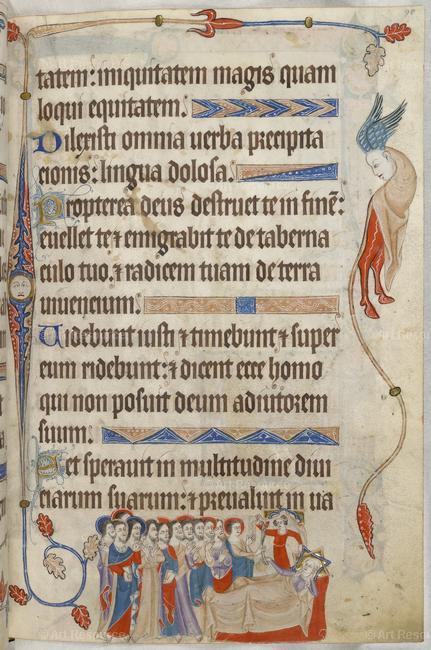 98
tatem: iniquitatem magis quam
loqui equitatem.
Dilexisti omnia uerba precipita
cionis: lingua dolosa.
Propterea deus destruet te in finē:
euellet te ⁊ emigrabit te de taberna
culo tuo. ⁊ radicem tuam de terra
uiuencium.
Uidebunt iusti ⁊ timebunt ⁊ super
eum ridebunt: ⁊ dicent ecce homo
qui non posuit deum adiutorem
suum.
Set sperauit in multitudine diui
ciarum suarum: ⁊ preualuit in ua
© Art Resource